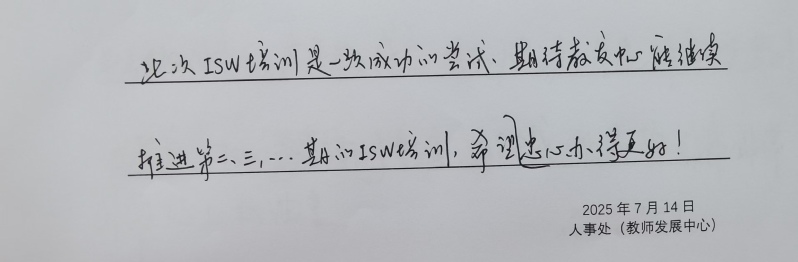 此次ISW培训是一次成功的尝试、期待教发中心能继续
推进第二、三,…期的ISW培训,希望忠心办得更好!
2025年7月14日
人事处(教师发展中心)